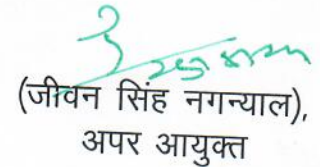 (जीवन सिंह नगन्याल),
अपर आयुक्त